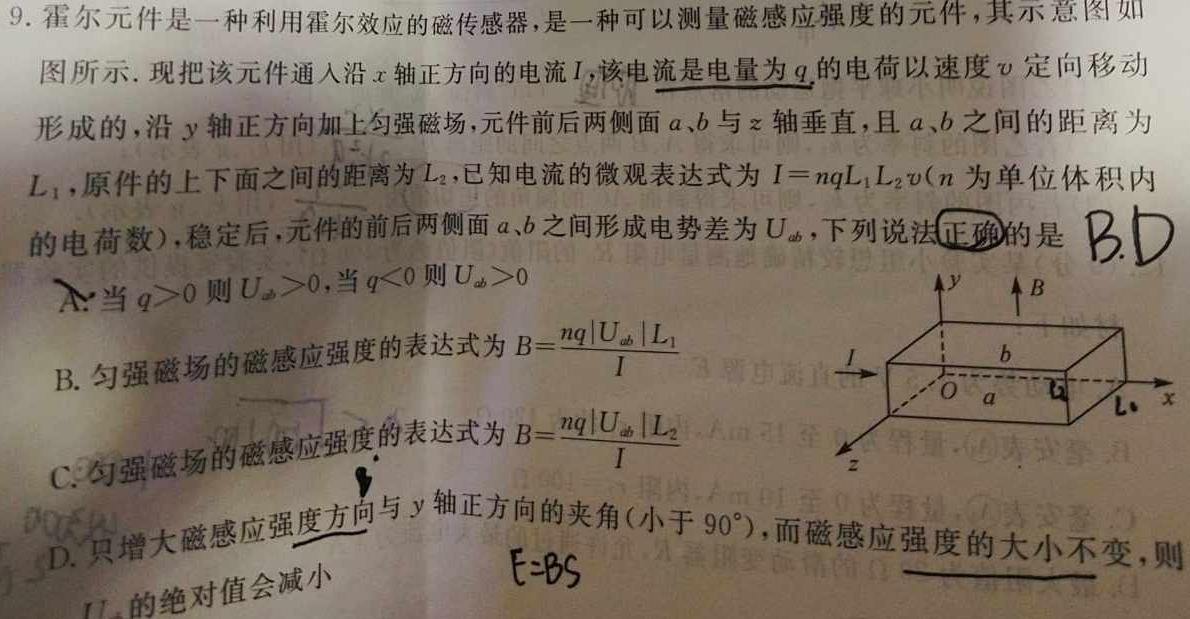 9. 霍尔元件是一种利用霍尔效应的磁传感器,是一种可以测量磁感应强度的元件,其示意图如
图所示. 现把该元件通入沿 x 轴正方向的电流 I,该电流是电量为 q 的电荷以速度 v 定向移动
形成的,沿 y 轴正方向加上匀强磁场,元件前后两侧面 a、b 与 z 轴垂直,且 a、b 之间的距离为
L₁,原件的上下面之间的距离为 L₂,已知电流的微观表达式为 I=nqL₁L₂v(n 为单位体积内
的电荷数),稳定后,元件的前后两侧面 a、b 之间形成电势差为 Uab,下列说法正确的是 B.D
A. 当 q>0 则 Uab>0,当 q<0 则 Uab>0
B. 匀强磁场的磁感应强度的表达式为 B=nq|Uab|L₁/I
C. 匀强磁场的磁感应强度的表达式为 B=nq|Uab|L₂/I
D. 只增大磁感应强度方向与 y 轴正方向的夹角(小于 90°),而磁感应强度的大小不变,则
的绝对值会减小
E=BS
y
B
I
b
O
a
L₂
L₁
x
z